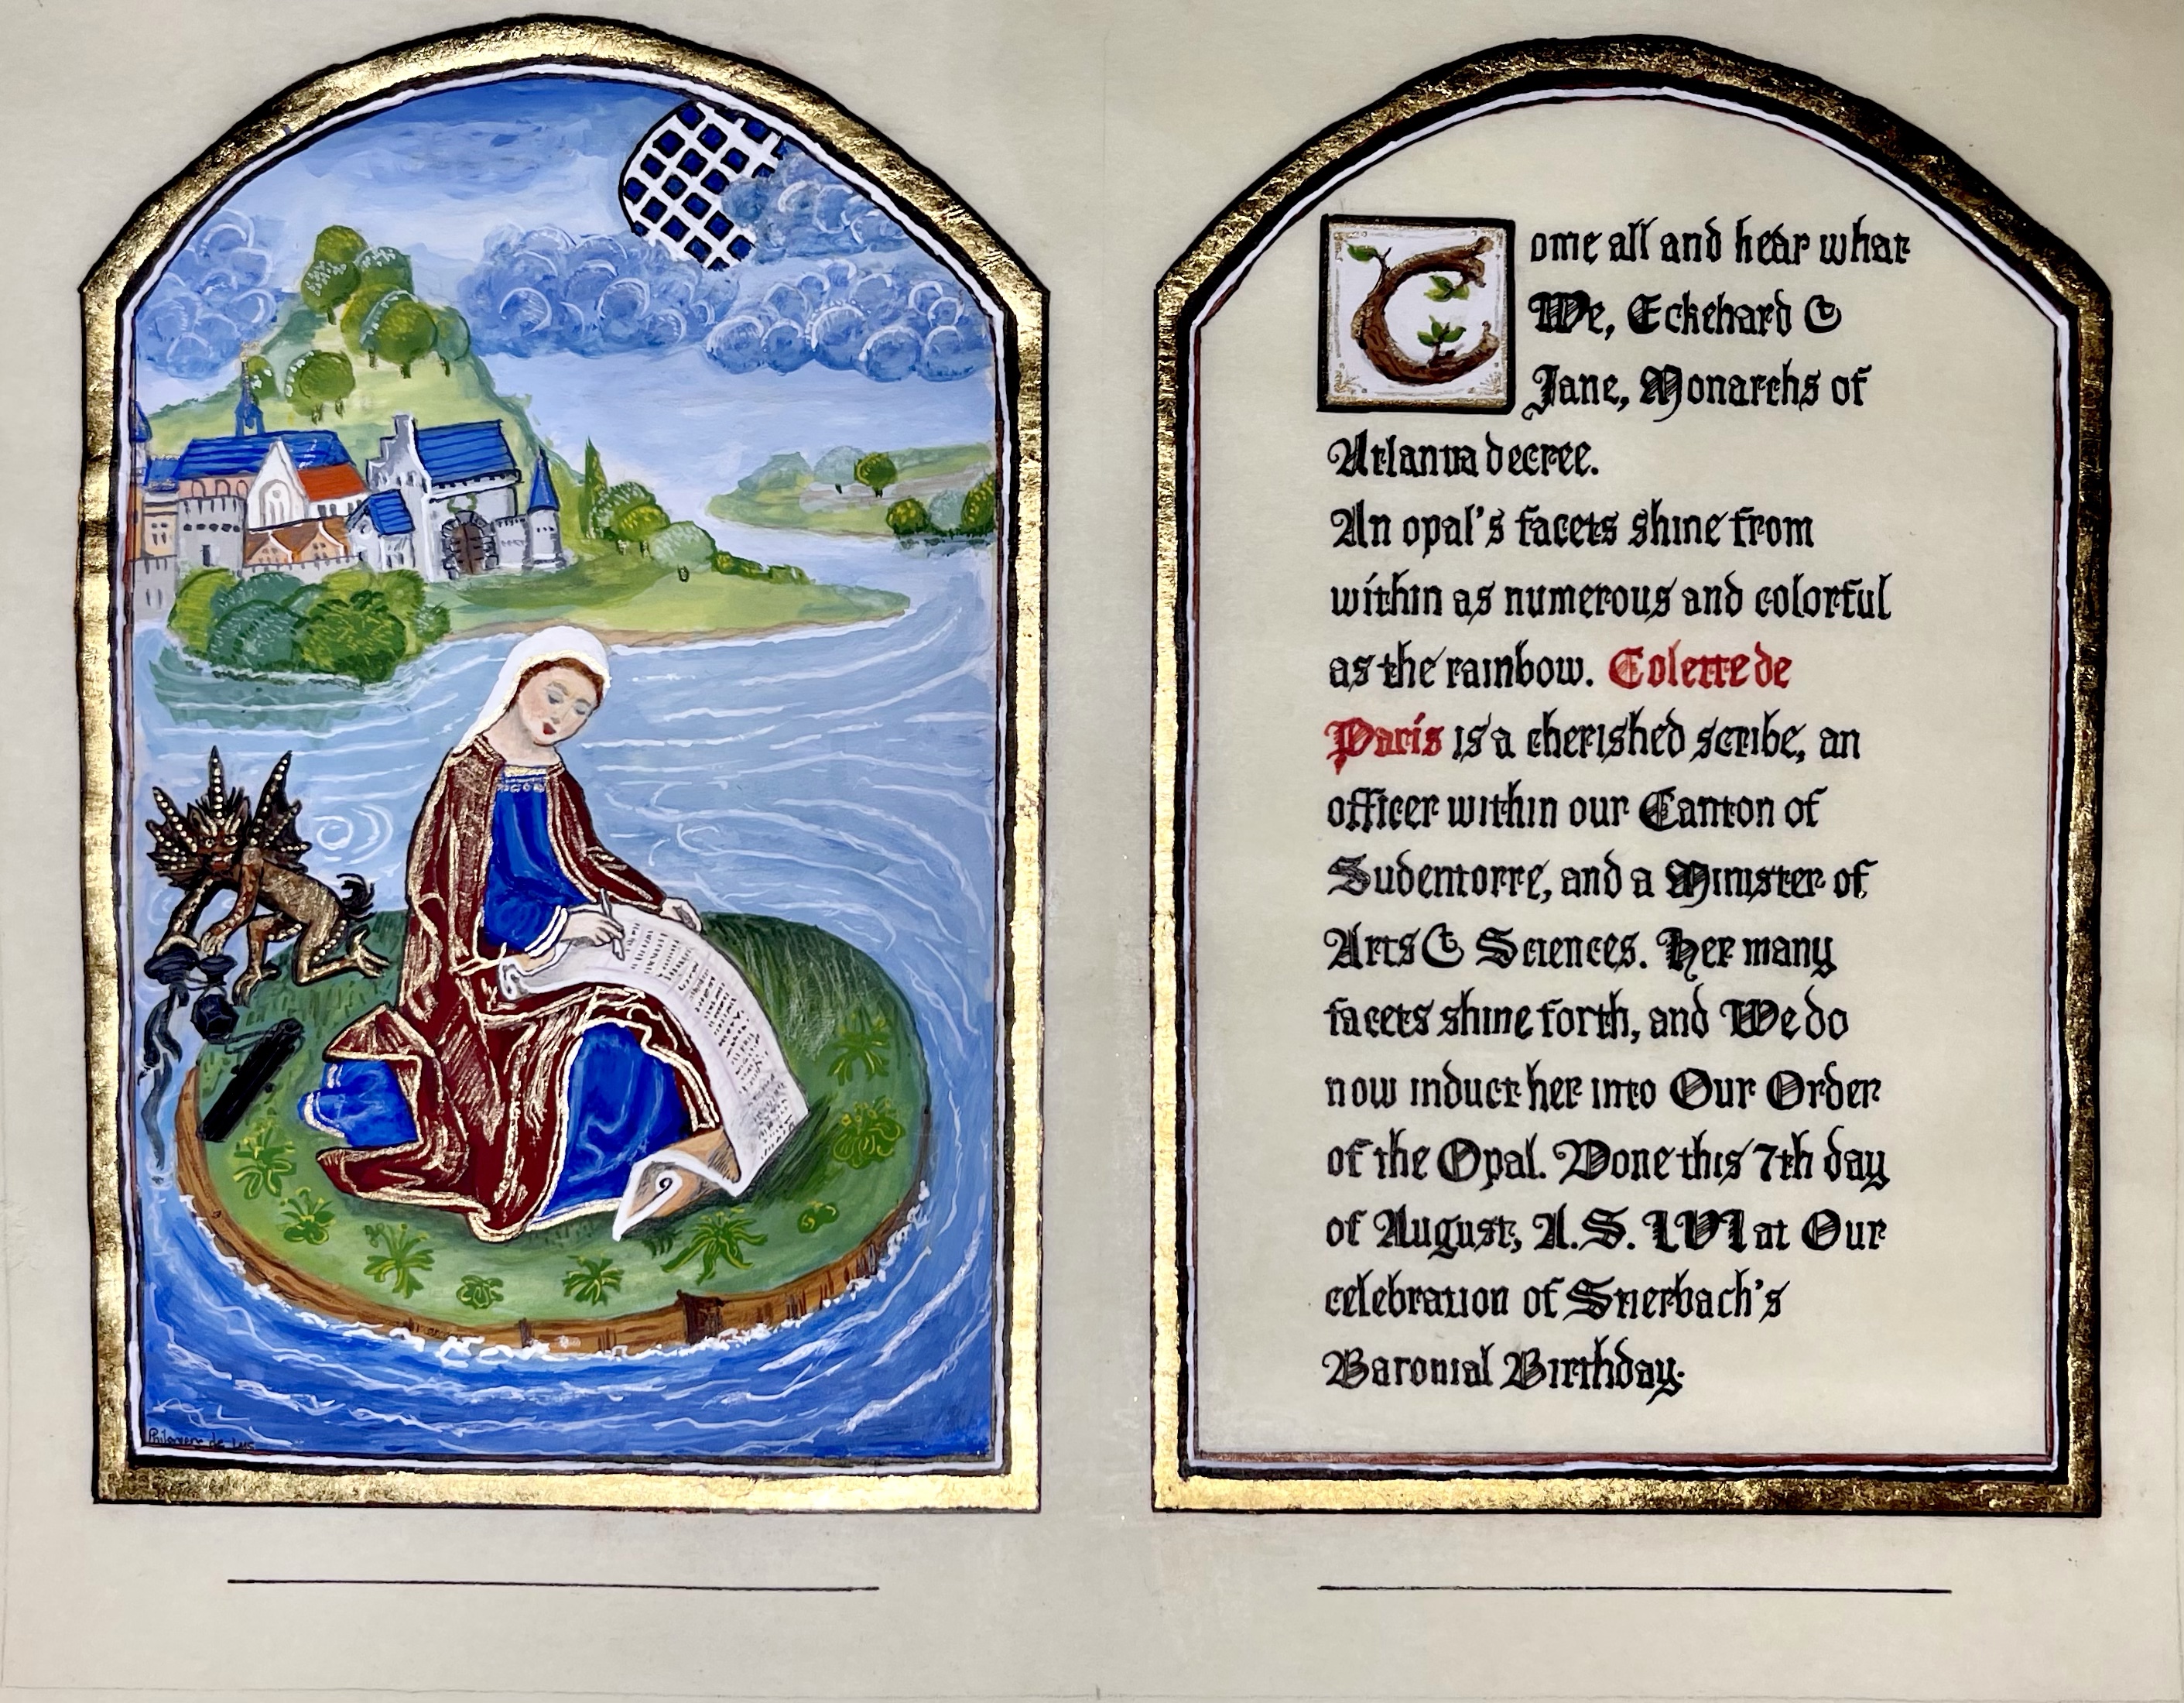 Come all and hear what
We, Eckehard &
Jane, Monarchs of
Atlantia decree.
An opal's facets shine from
within as numerous and colorful
as the rainbow. Colette de
Paris is a cherished scribe, an
officer within our Canton of
Sudentorre, and a Minister of
Arts & Sciences. Her many
facets shine forth, and We do
now induct her into Our Order
of the Opal. Done this 7th day
of August, A.S. LVI at Our
celebration of Stierbach's
Baronial Birthday.